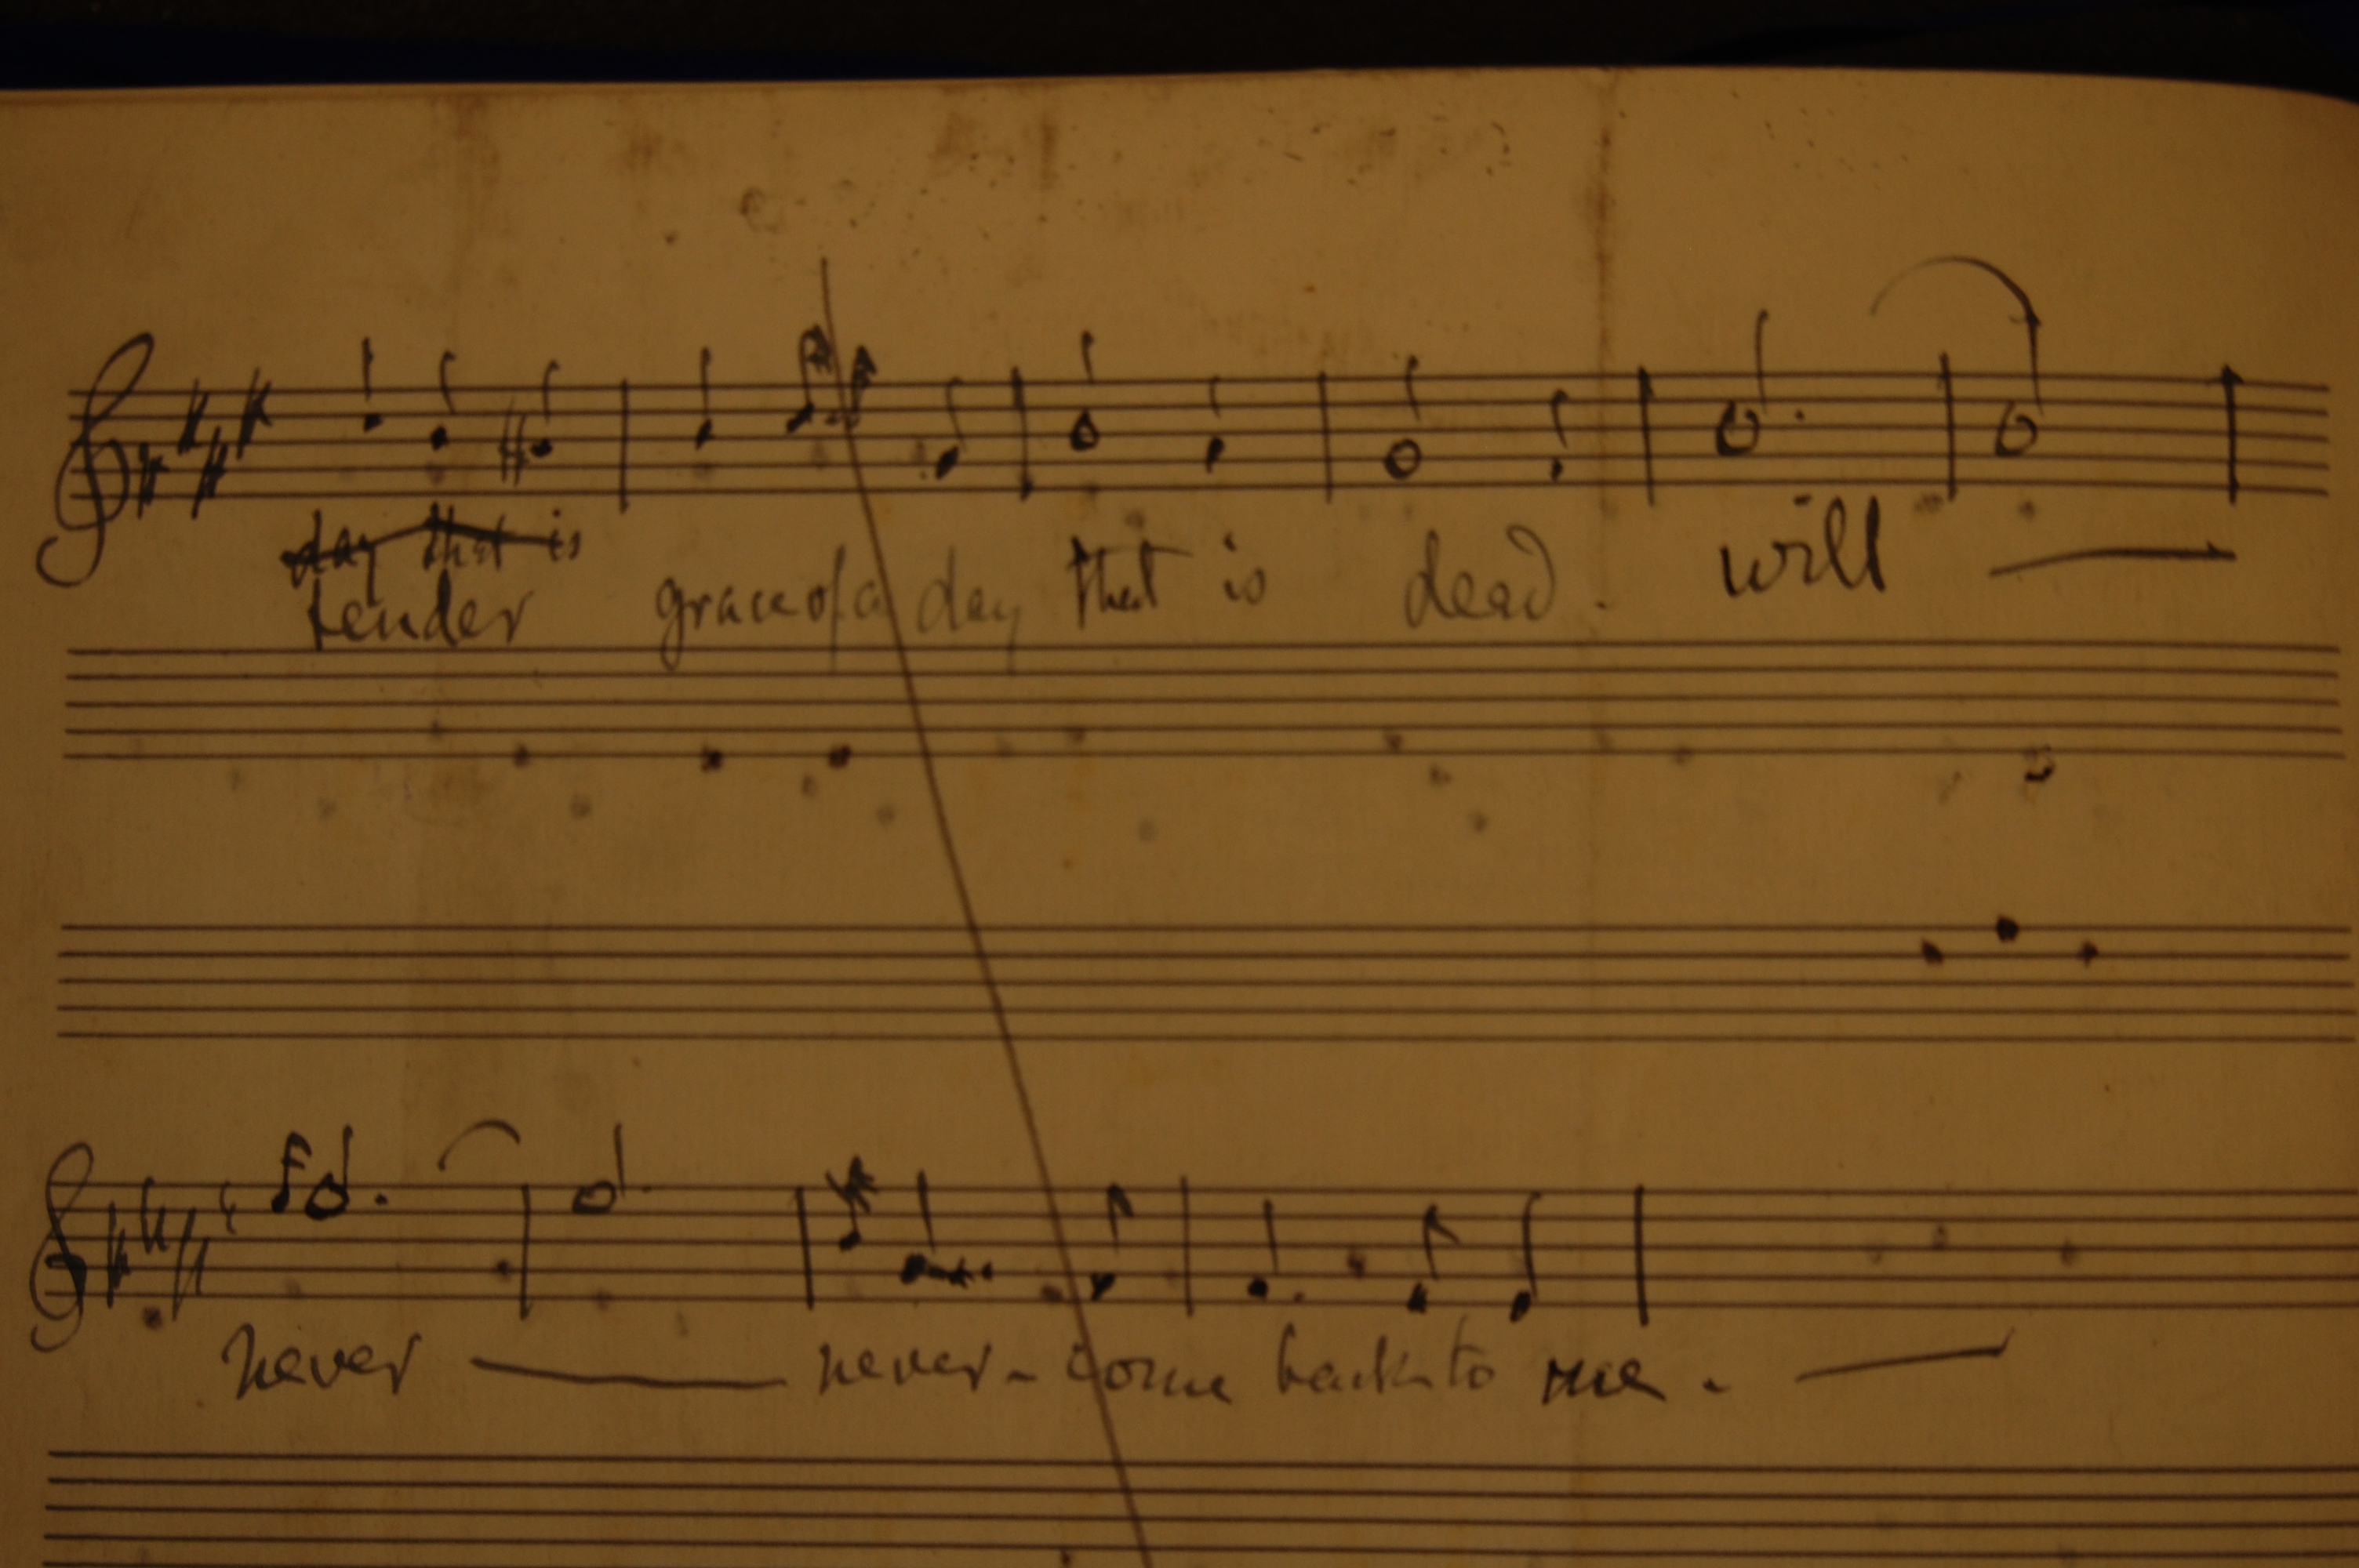 day that is
tender grace of a day that is dead. will —
never — never - come back to me. —